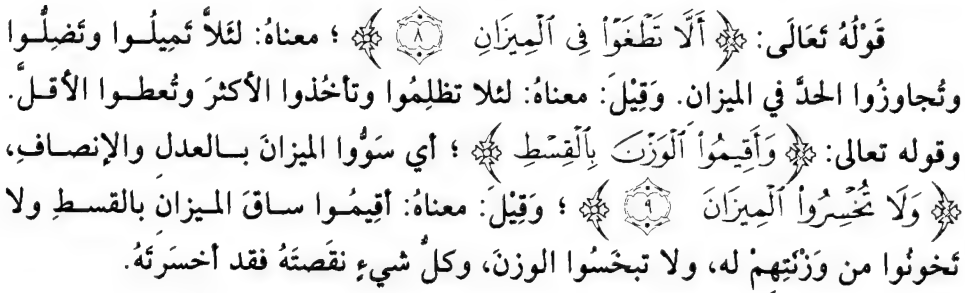 قَوْلُهُ تَعَالَى: ﴿ أَلَّا تَطْغَوْاْ فِى ٱلْمِيزَانِ ٨ ﴾ ؛ معناهُ: لئَلاَّ تَمِيلُـوا وتَضِلُّـوا
وتُجاوزُوا الحدَّ في الميزان. وَقِيْلَ: معناهُ: لئلا تظلِمُوا وتأخُذوا الأكثرَ وتُعطـوا الأقـلَّ.
وقوله تعالى: ﴿ وَأَقِيمُواْ ٱلْوَزْنَ بِٱلْقِسْطِ ﴾ ؛ أي سَوُّوا الميزانَ بـالعدلِ والإنصـافِ،
﴿ وَلَا تُخْسِرُواْ ٱلْمِيزَانَ ٩ ﴾ ؛ وَقِيْلَ: معناهُ: أقِيمُـوا سـاقَ المـيزانِ بالقسـطِ ولا
تَخونُوا من وَزَنْتِهمْ له، ولا تبخَسُوا الوزنَ، وكلُّ شيءٍ نقَصتَهُ فقد أخسَرتَهُ.